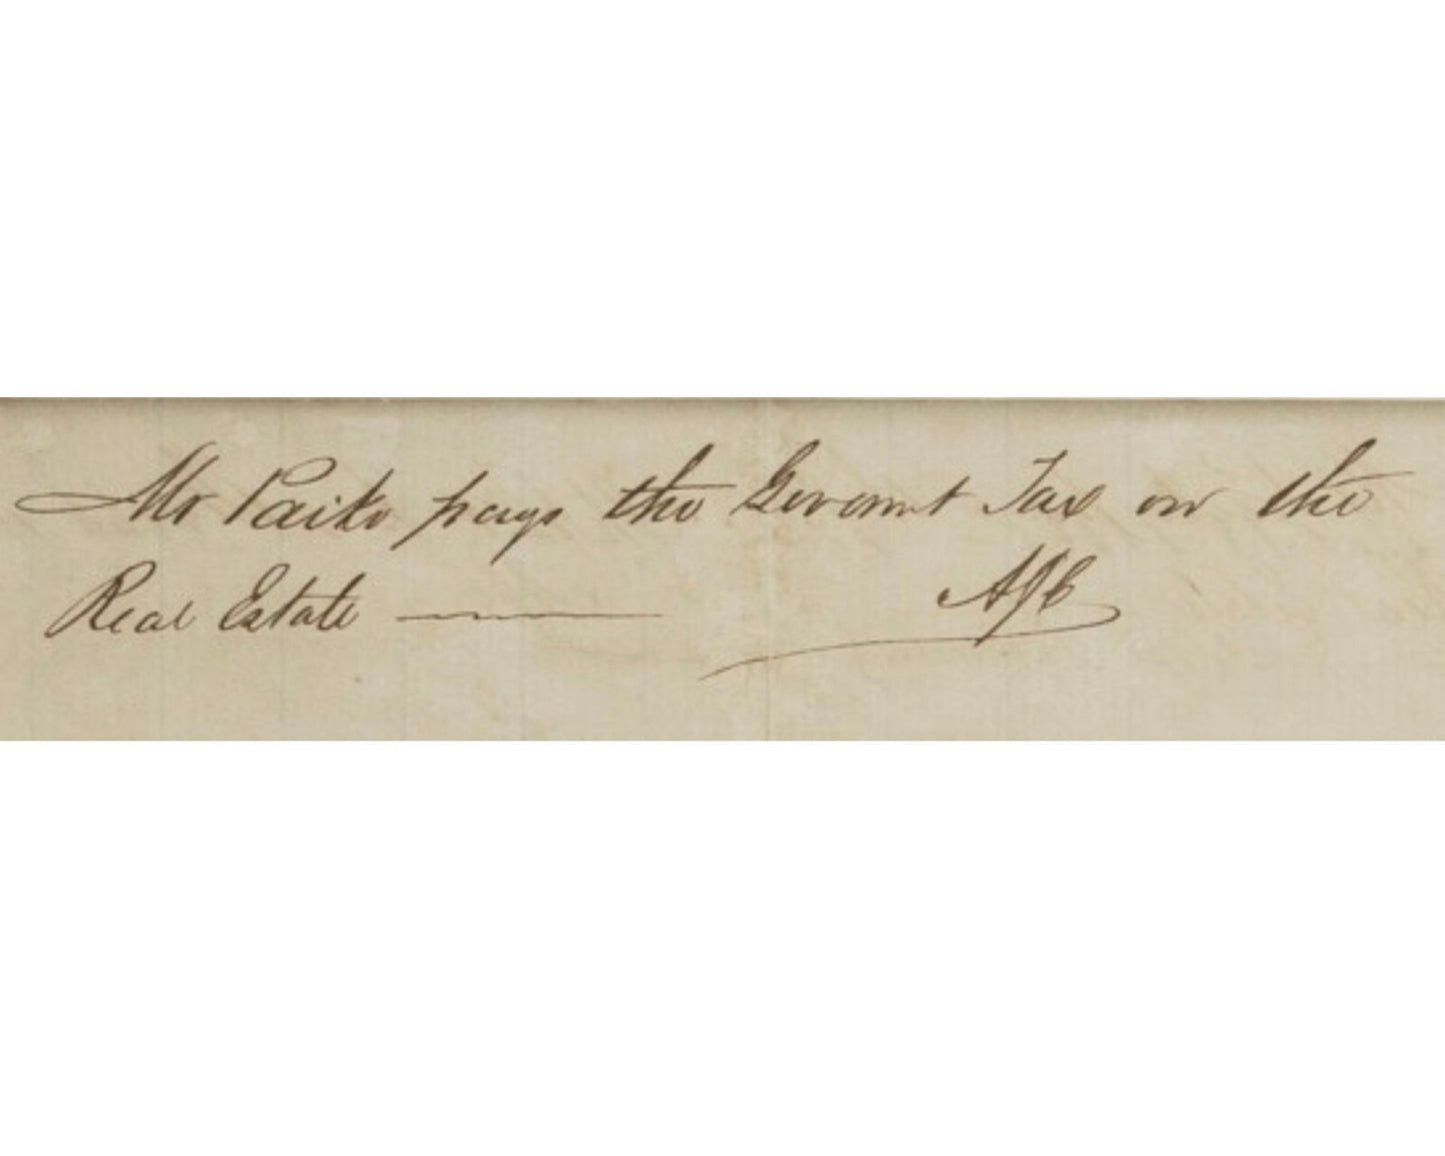 Mr Paike pays the Governmt Tax on the
Real Estate — AJB